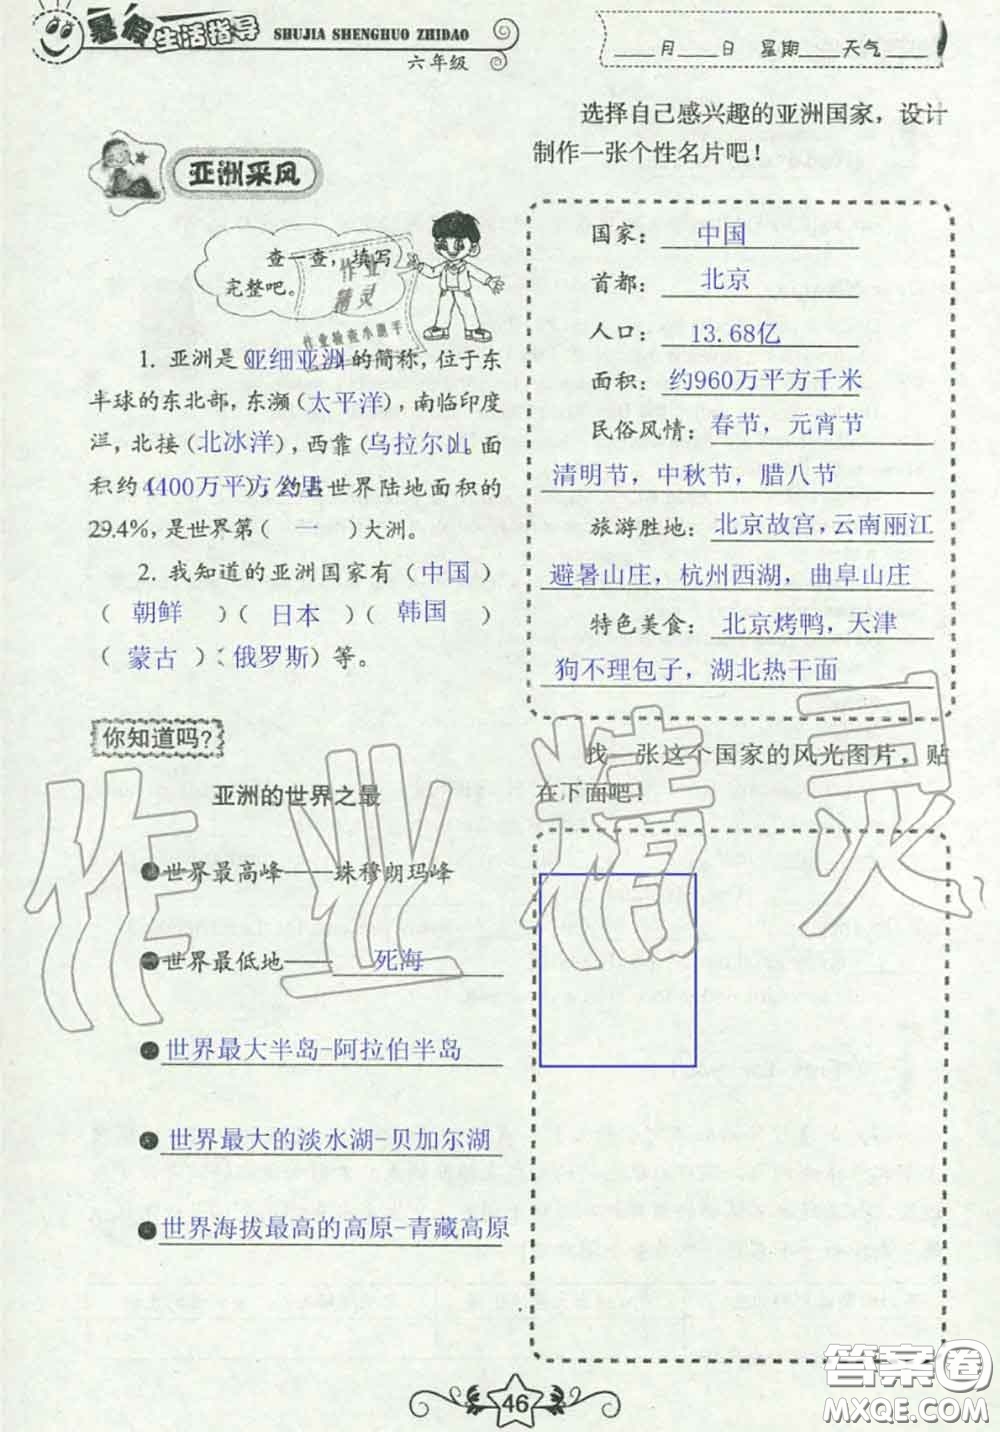 暑假生活指导
SHUJIA SHENGHUO ZHIDAO
六年级
____月____日 星期____天气____
亚洲采风
查一查，填写
完整吧。
作业
精灵
作业检查小帮手
1. 亚洲是(亚细亚洲)的简称，位于东
半球的东北部，东濒(太平洋)，南临印度
洋，北接(北冰洋)，西靠(乌拉尔山)。面
积约(4400万平方公里)，约占世界陆地面积的
29.4%，是世界第( 一 )大洲。
2. 我知道的亚洲国家有(中国)
( 朝鲜 )( 日本 )( 韩国 )
( 蒙古 )(俄罗斯)等。
你知道吗?
亚洲的世界之最
●世界最高峰——珠穆朗玛峰
●世界最低地—— 死海
●世界最大半岛-阿拉伯半岛
●世界最大的淡水湖-贝加尔湖
●世界海拔最高的高原-青藏高原
选择自己感兴趣的亚洲国家，设计
制作一张个性名片吧！
国家： 中国
首都： 北京
人口： 13.68亿
面积：约960万平方千米
民俗风情：春节，元宵节
清明节，中秋节，腊八节
旅游胜地：北京故宫，云南丽江
避暑山庄，杭州西湖，曲阜山庄
特色美食：北京烤鸭，天津
狗不理包子，湖北热干面
找一张这个国家的风光图片，贴
在下面吧！
作业精灵
46
答案圈
MXQE.COM